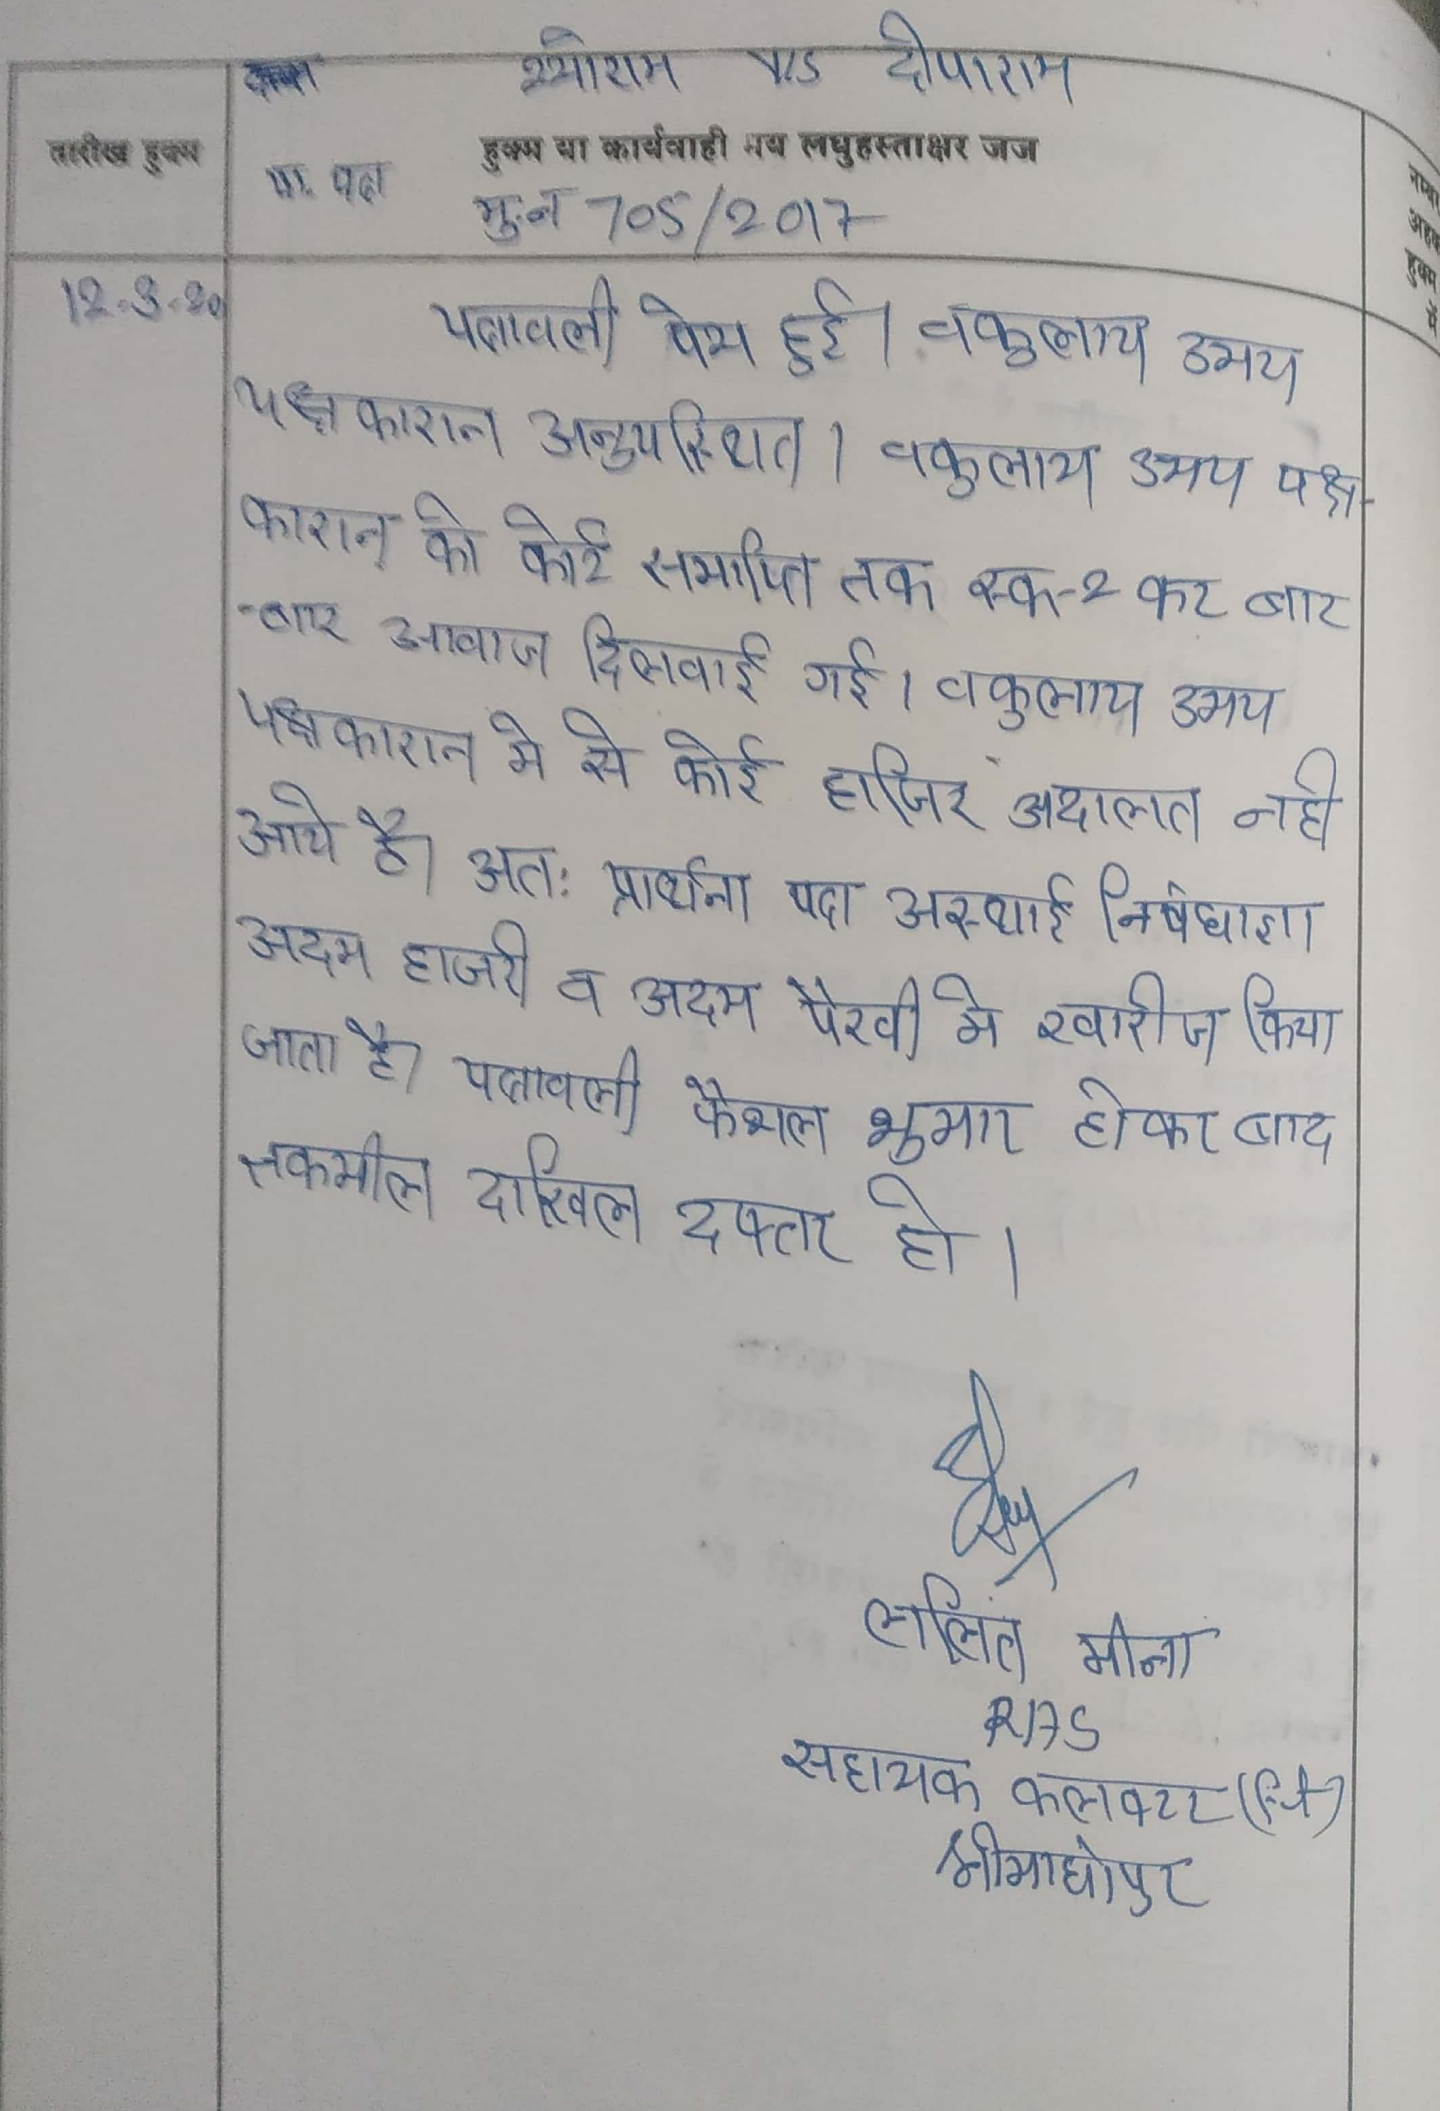 श्योराम v/s दीपाराम
तारीख हुक्म
हुक्म या कार्यवाही मय लघुहस्ताक्षर जज
प्रा. पत्र
मु.न 705/2017
12-3-20
पत्रावली पेश हुई। वकुलाय उभय
पक्षकारान अनुपस्थित। वकुलाय उभय पक्ष-
कारान को कोर्ट समाप्ति तक रूक-2 कर बार
-बार आवाज दिलवाई गई। वकुलाय उभय
पक्षकारान मे से कोई हाजिर अदालत नही
आये है। अतः प्रार्थना पत्र अस्थाई निषेधाज्ञा
अदम हाजरी व अदम पैरवी मे खारीज किया
जाता है। पत्रावली फैशल शुमार होकर बाद
तकमील दाखिल दफ्तर हो।
ललित मीना
RAS
सहायक कलक्टर
श्रीमाधोपुर